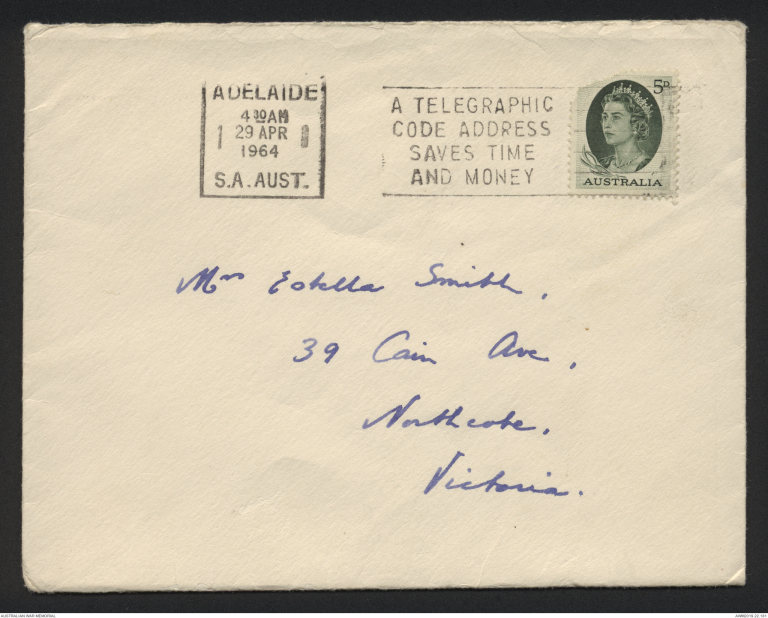 ADELAIDE
4 30AM
29 APR
1964
S.A. AUST.
A TELEGRAPHIC
CODE ADDRESS
SAVES TIME
AND MONEY
5D
AUSTRALIA
Mrs Estella Smith,
39 Cain Ave,
Northcote,
Victoria.
AUSTRALIAN WAR MEMORIAL